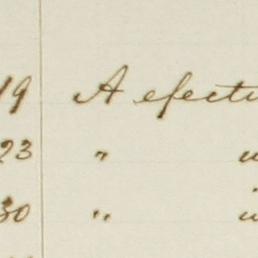 19 A efecti
23 "
30 "